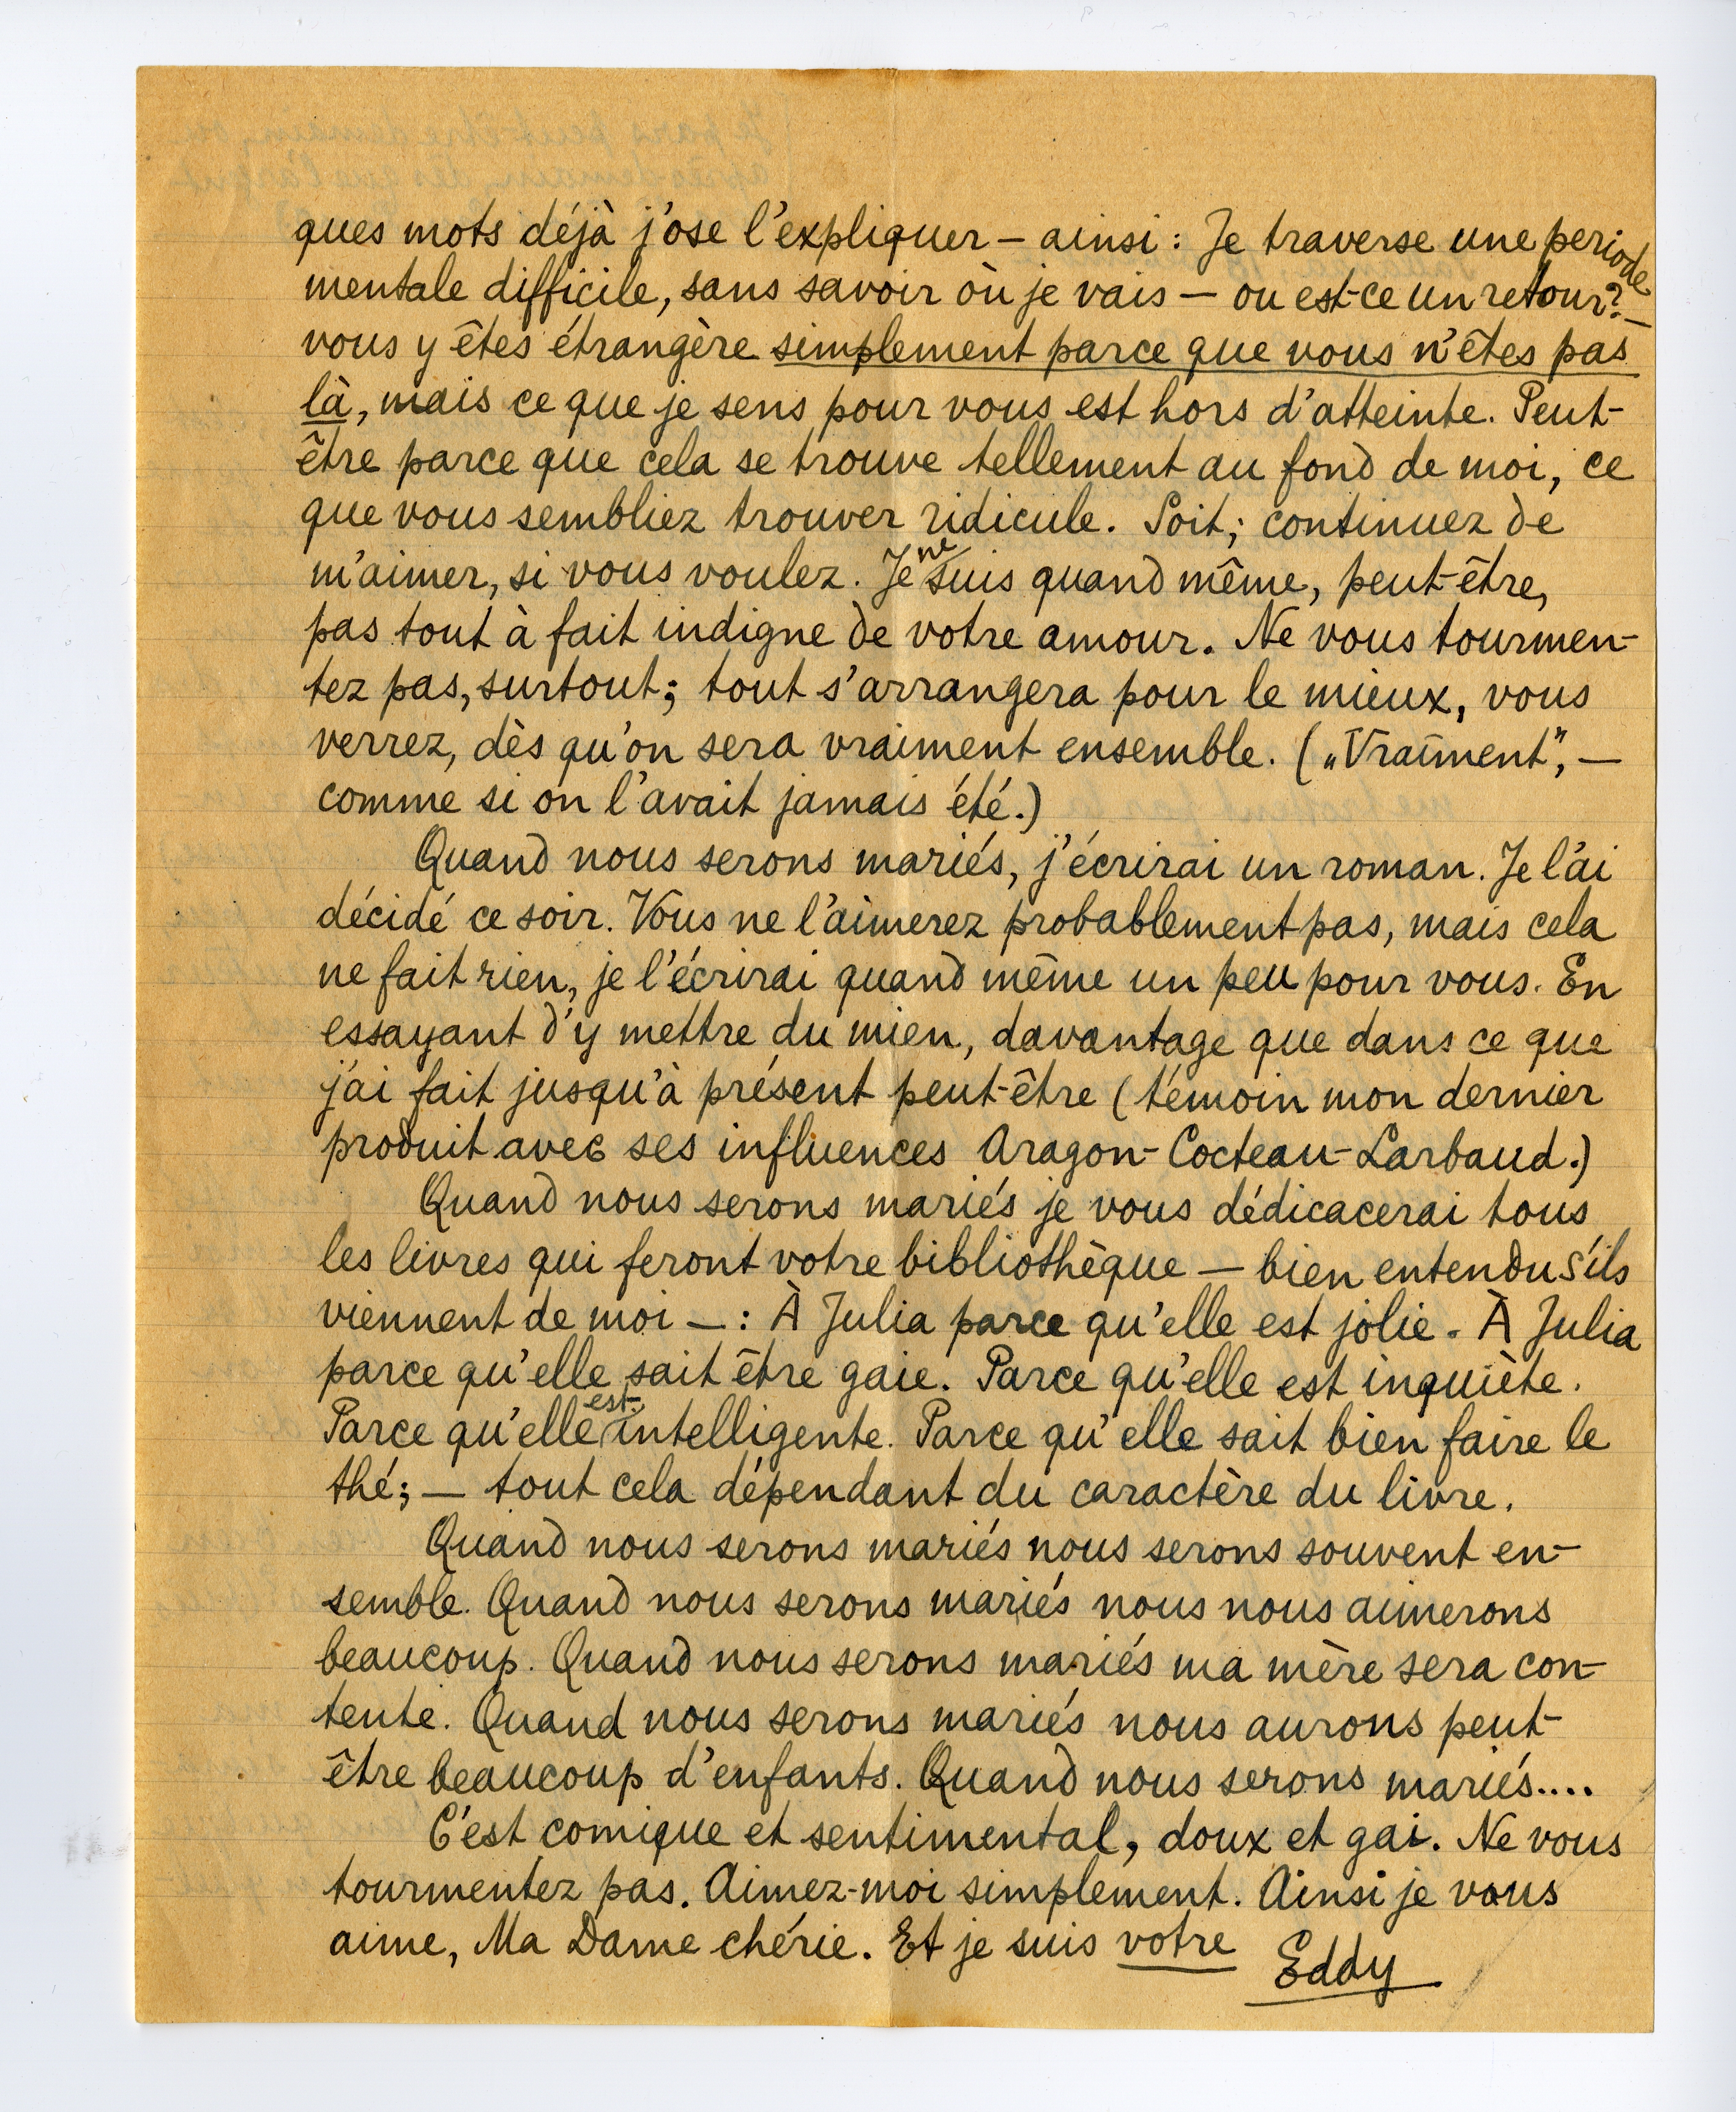 ques mots déjà j'ose l'expliquer – ainsi : Je traverse une periode
mentale difficile, sans savoir où je vais — ou est-ce un retour? —
vous y êtes étrangère simplement parce que vous n'êtes pas
là, mais ce que je sens pour vous est hors d'atteinte. Peut-
être parce que cela se trouve tellement au fond de moi, ce
que vous sembliez trouver ridicule. Soit; continuez de
m'aimer, si vous voulez. Je ne suis quand même, peut-être,
pas tout à fait indigne de votre amour. Ne vous tourmen-
tez pas, surtout; tout s'arrangera pour le mieux, vous
verrez, dès qu'on sera vraiment ensemble. („Vraiment", —
comme si on l'avait jamais été.)
Quand nous serons mariés, j'écrirai un roman. Je l'ai
décidé ce soir. Vous ne l'aimerez probablement pas, mais cela
ne fait rien, je l'écrirai quand même un peu pour vous. En
essayant d'y mettre du mien, davantage que dans ce que
j'ai fait jusqu'à présent peut-être (témoin mon dernier
produit avec ses influences Aragon-Cocteau-Larbaud.)
Quand nous serons mariés je vous dédicacerai tous
les livres qui feront votre bibliothèque — bien entendu s'ils
viennent de moi — : À Julia parce qu'elle est jolie. À Julia
parce qu'elle sait être gaie. Parce qu'elle est inquiète.
Parce qu'elle est intelligente. Parce qu'elle sait bien faire le
thé; — tout cela dépendant du caractère du livre.
Quand nous serons mariés nous serons souvent en-
semble. Quand nous serons mariés nous nous aimerons
beaucoup. Quand nous serons mariés ma mère sera con-
tente. Quand nous serons mariés nous aurons peut-
être beaucoup d'enfants. Quand nous serons mariés....
C'est comique et sentimental, doux et gai. Ne vous
tourmentez pas. Aimez-moi simplement. Ainsi je vous
aime, Ma Dame chérie. Et je suis votre
Eddy